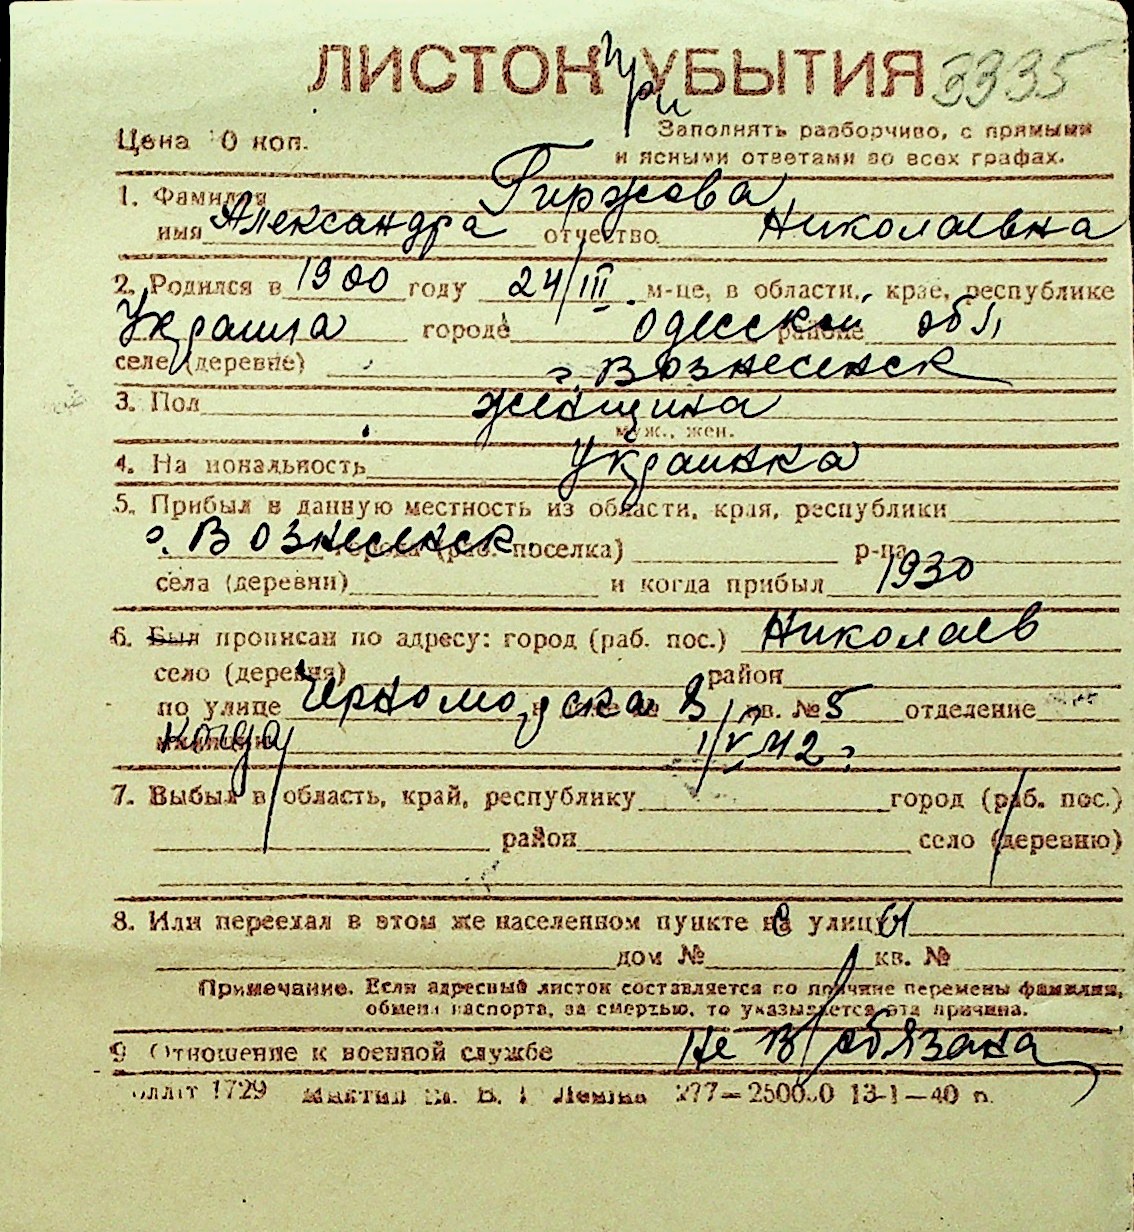 ЛИСТОК при УБЫТИЯ 3335
Цена 10 коп.
Заполнять разборчиво, с прямыми
и ясными ответами во всех графах.
1. Фамилия Гиржова
имя Александра отчество Николаевна
2. Родился в 1900 году 24/III м-це, в области, крае, республике
Украина городе Одесской районе обл,
селе (деревне) г. Вознесенск
3. Пол женщина
муж., жен.
4. Национальность Украинка
5. Прибыл в данную местность из области, края, республики
г. Вознесенск города (раб. поселка) р-на
села (деревни) и когда прибыл 1930
6. Был прописан по адресу: город (раб. пос.) Николаев
село (деревня) район
по улице Черноморска 8 кв. № 5 отделение
когда 1/V 42 г
7. Выбыл в область, край, республику город (раб. пос.)
район село (деревню)
8. Или переехал в этом же населенном пункте с улицы
дом № кв. №
Примечание. Если адресный листок составляется по причине перемены фамилии,
обмена паспорта, за смертью, то указывается эта причина.
9 Отношение к военной службе не в/обязана
1729 В. И. Ленина 277—250000 13-1—40 п.